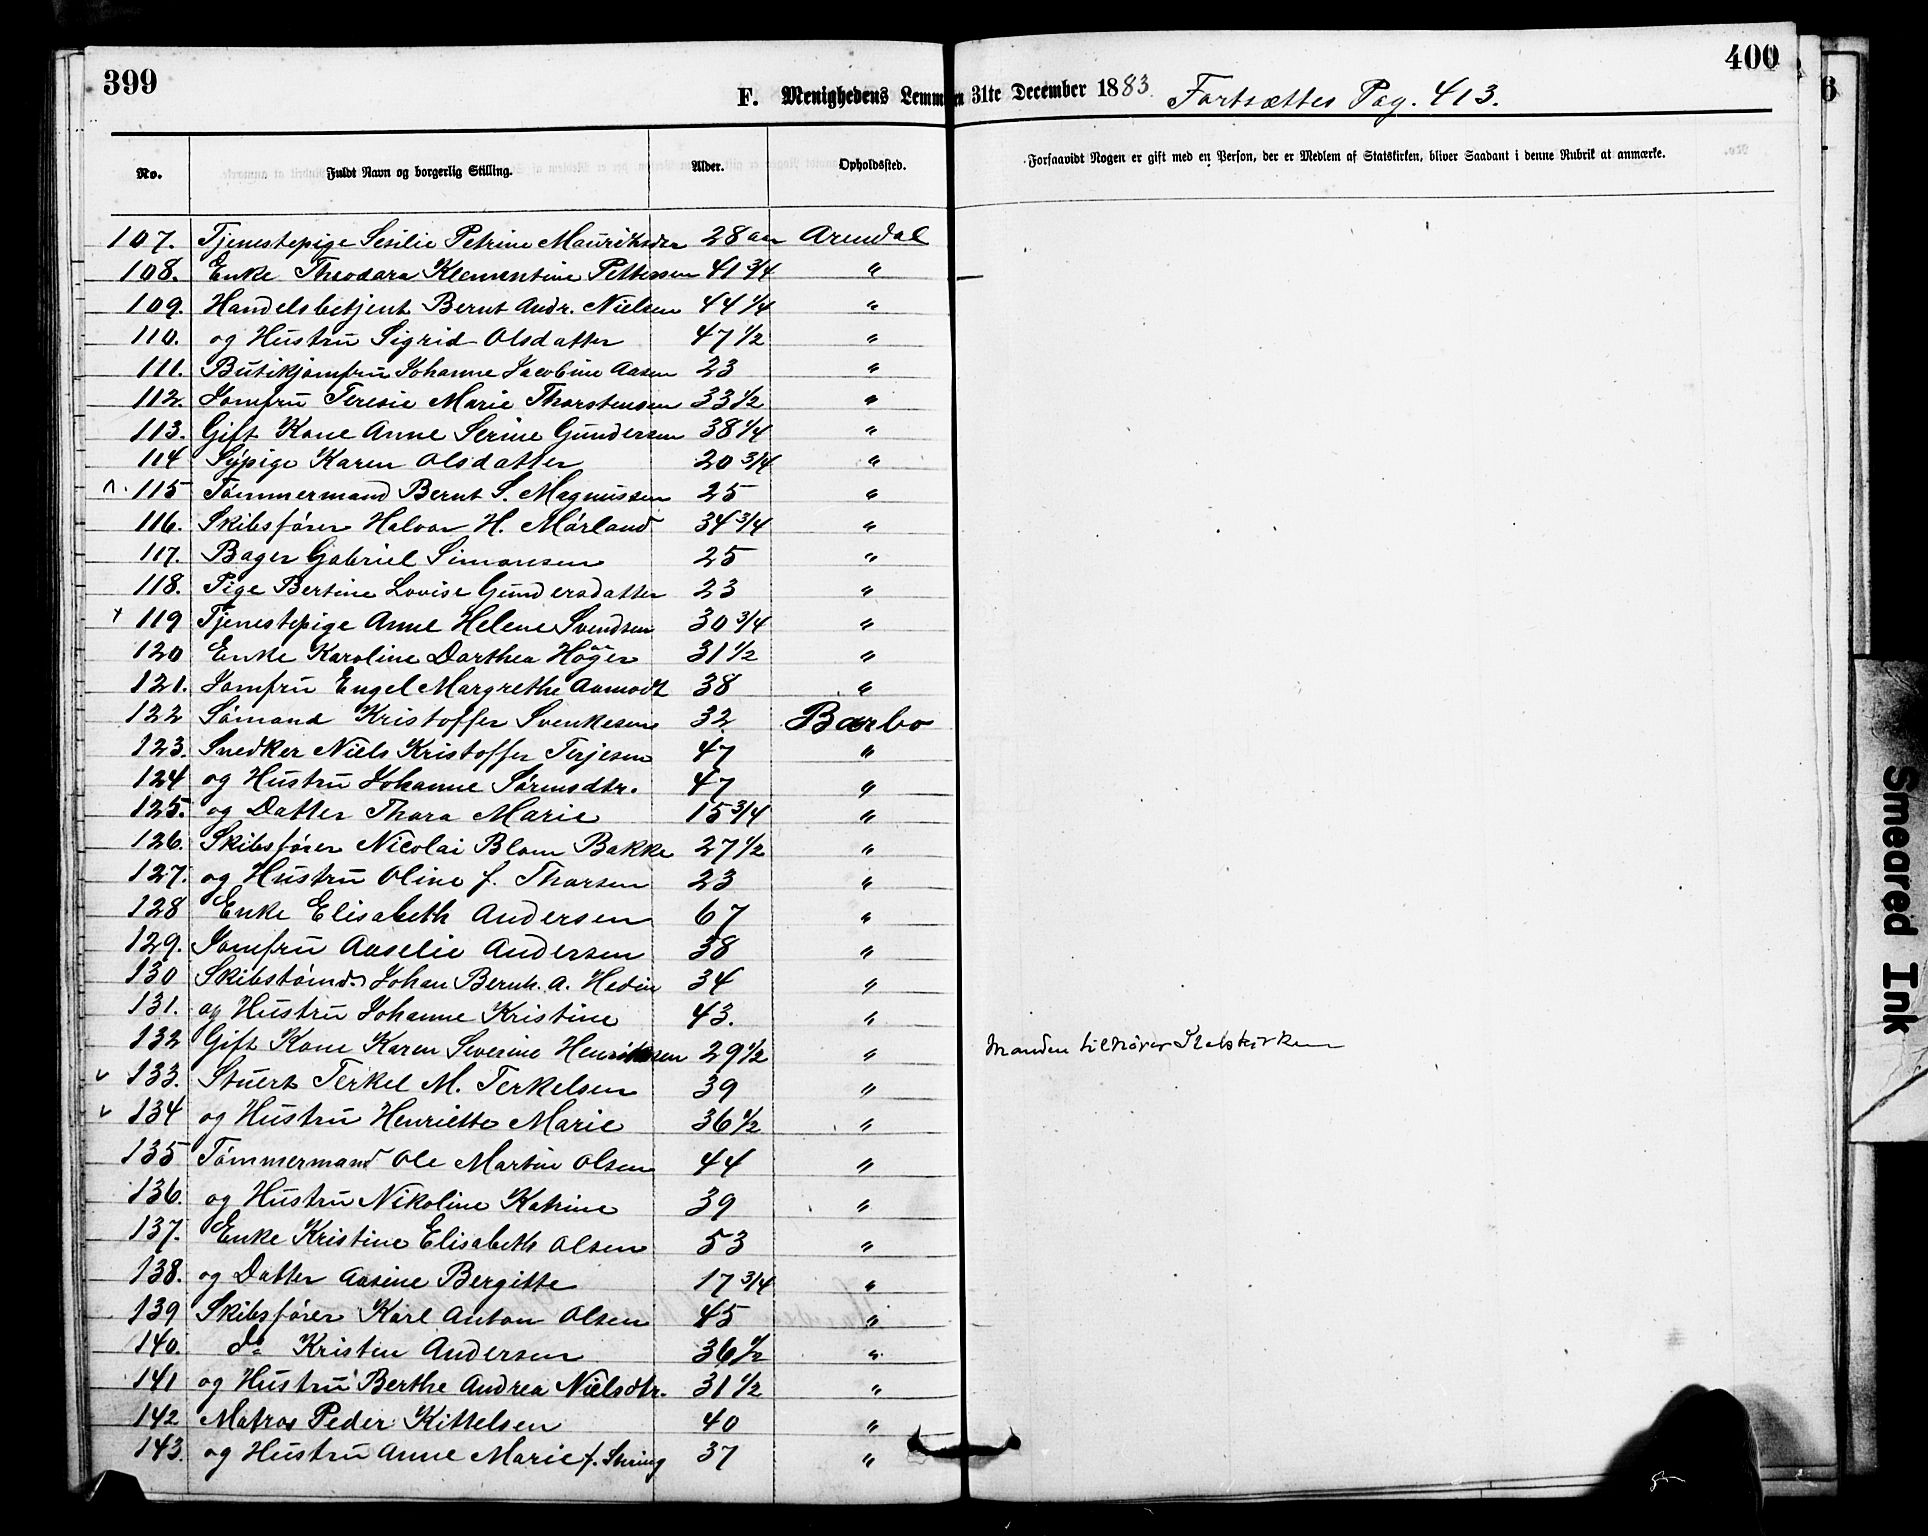 399
400
F. Menighedens Lemmer 31te December 1883. Fortsættes Pag. 413.
No. Fuldt Navn og borgerlig Stilling. Alder. Opholdssted. Forsaavidt Nogen er gift med en Person, der er Medlem af Statskirken, bliver Saadant i denne Rubrik at anmærke.
107. Tjenestepige Sesilie Petrine 28 aar Arendal
108. Enke Theodora Klementine Pettersen 41 3/4 "
109. Handelsbetjent Bernt Andr. Nielsen 44 1/4 "
110. og Hustru Sigrid Olsdatter 47 1/2 "
111. Butikjomfru Johanne Jacobine Aasen 23 "
112. Jomfru Teresie Marie Thorstensen 33 1/2 "
113. Gift Kone Anne Serine Gundersen 38 1/4 "
114 Sypige Karen Olsdatter 20 3/4 "
115 Tømmermand Bernt S. Magnussen 25 "
116. Skibsfører Halvor H. Mørland 34 3/4 "
117. Bager Gabriel Simonsen 25 "
118. Pige Bertine Lovise Gundersdatter 23 "
+ 119 Tjenestepige Anne Helene Svendsen 30 3/4 "
120 Enke Karoline Dorthea Höÿer 31 1/2 "
121. Jomfru Engel Margrethe Aamodt 38 "
122 Sømand Kristoffer Svenkesen 32. Barbo
123. Snedker Niels Kristoffer Terjesen 47 "
124 og Hustru Johanne Sørensdtr. 47 "
125. og Datter Thora Marie 15 3/4 "
126. Skibsfører Nicolai Blom Bakke 27 1/2 "
127. og Hustru Oline f. Thorsen 23 "
128 Enke Elisabeth Andersen 67 "
129. Jomfru Aaselie Andersen 38 "
130 Skibstømd. Johan Bernh. A. Hedin 34 "
131. og Hustru Johanne Kristine 43. "
132 Gift Kone Karen Severine Henriksen 29 1/2 " Manden tilhører Statskirken
v 133. Stuert Terkel M. Terkelsen 39 "
v 134 og Hustru Henriette Marie 36 1/2 "
135 Tømmermand Ole Martin Olsen 44 "
136. og Hustru Nikoline Katrine 39 "
137. Enke Kristine Elisabeth Olsen 53 "
138. og Datter Aasine Bergitte 17 3/4 "
139 Skibsfører Karl Anton Olsen 45 "
140. do Kristen Andersen 36 1/2 "
141 og Hustru Berthe Andrea Nielsdtr. 31 1/2 "
142 Matros Peder Kittelsen 40 "
143. og Hustru Anne Marie f. 37 "
Smeared Ink